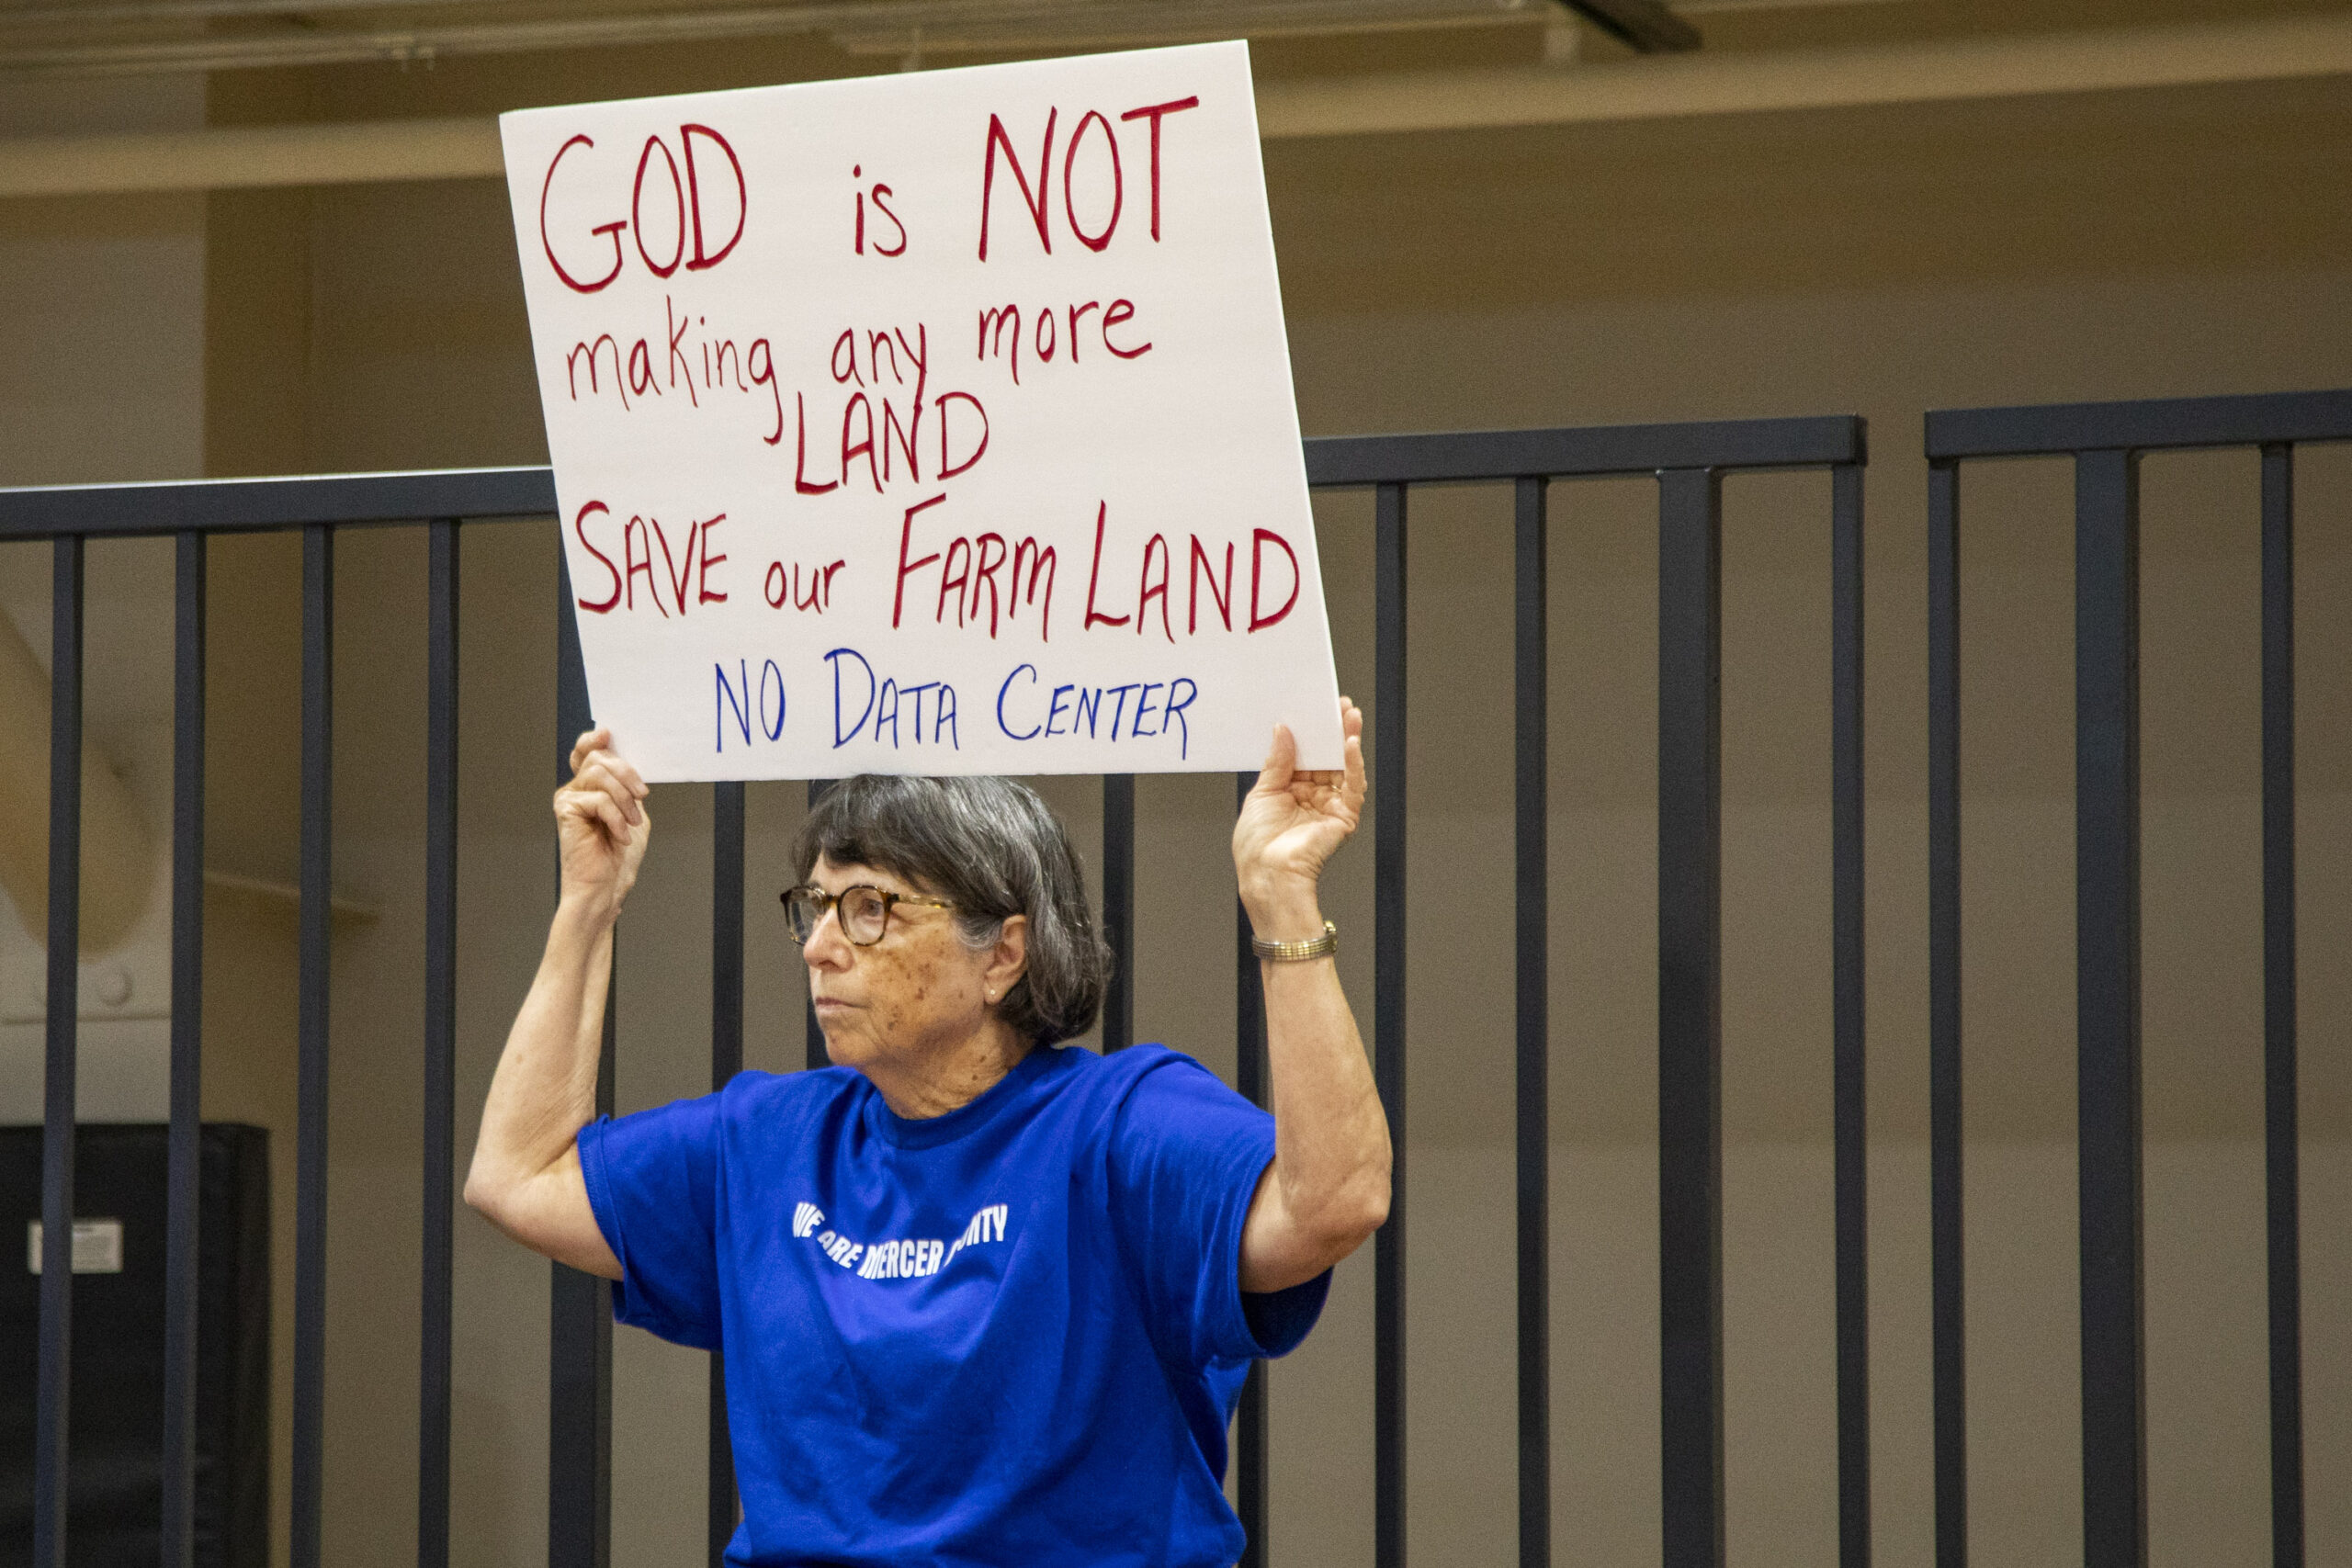 GOD is NOT
making any more
LAND
SAVE our FARM LAND
NO DATA CENTER
WE ARE MERCER